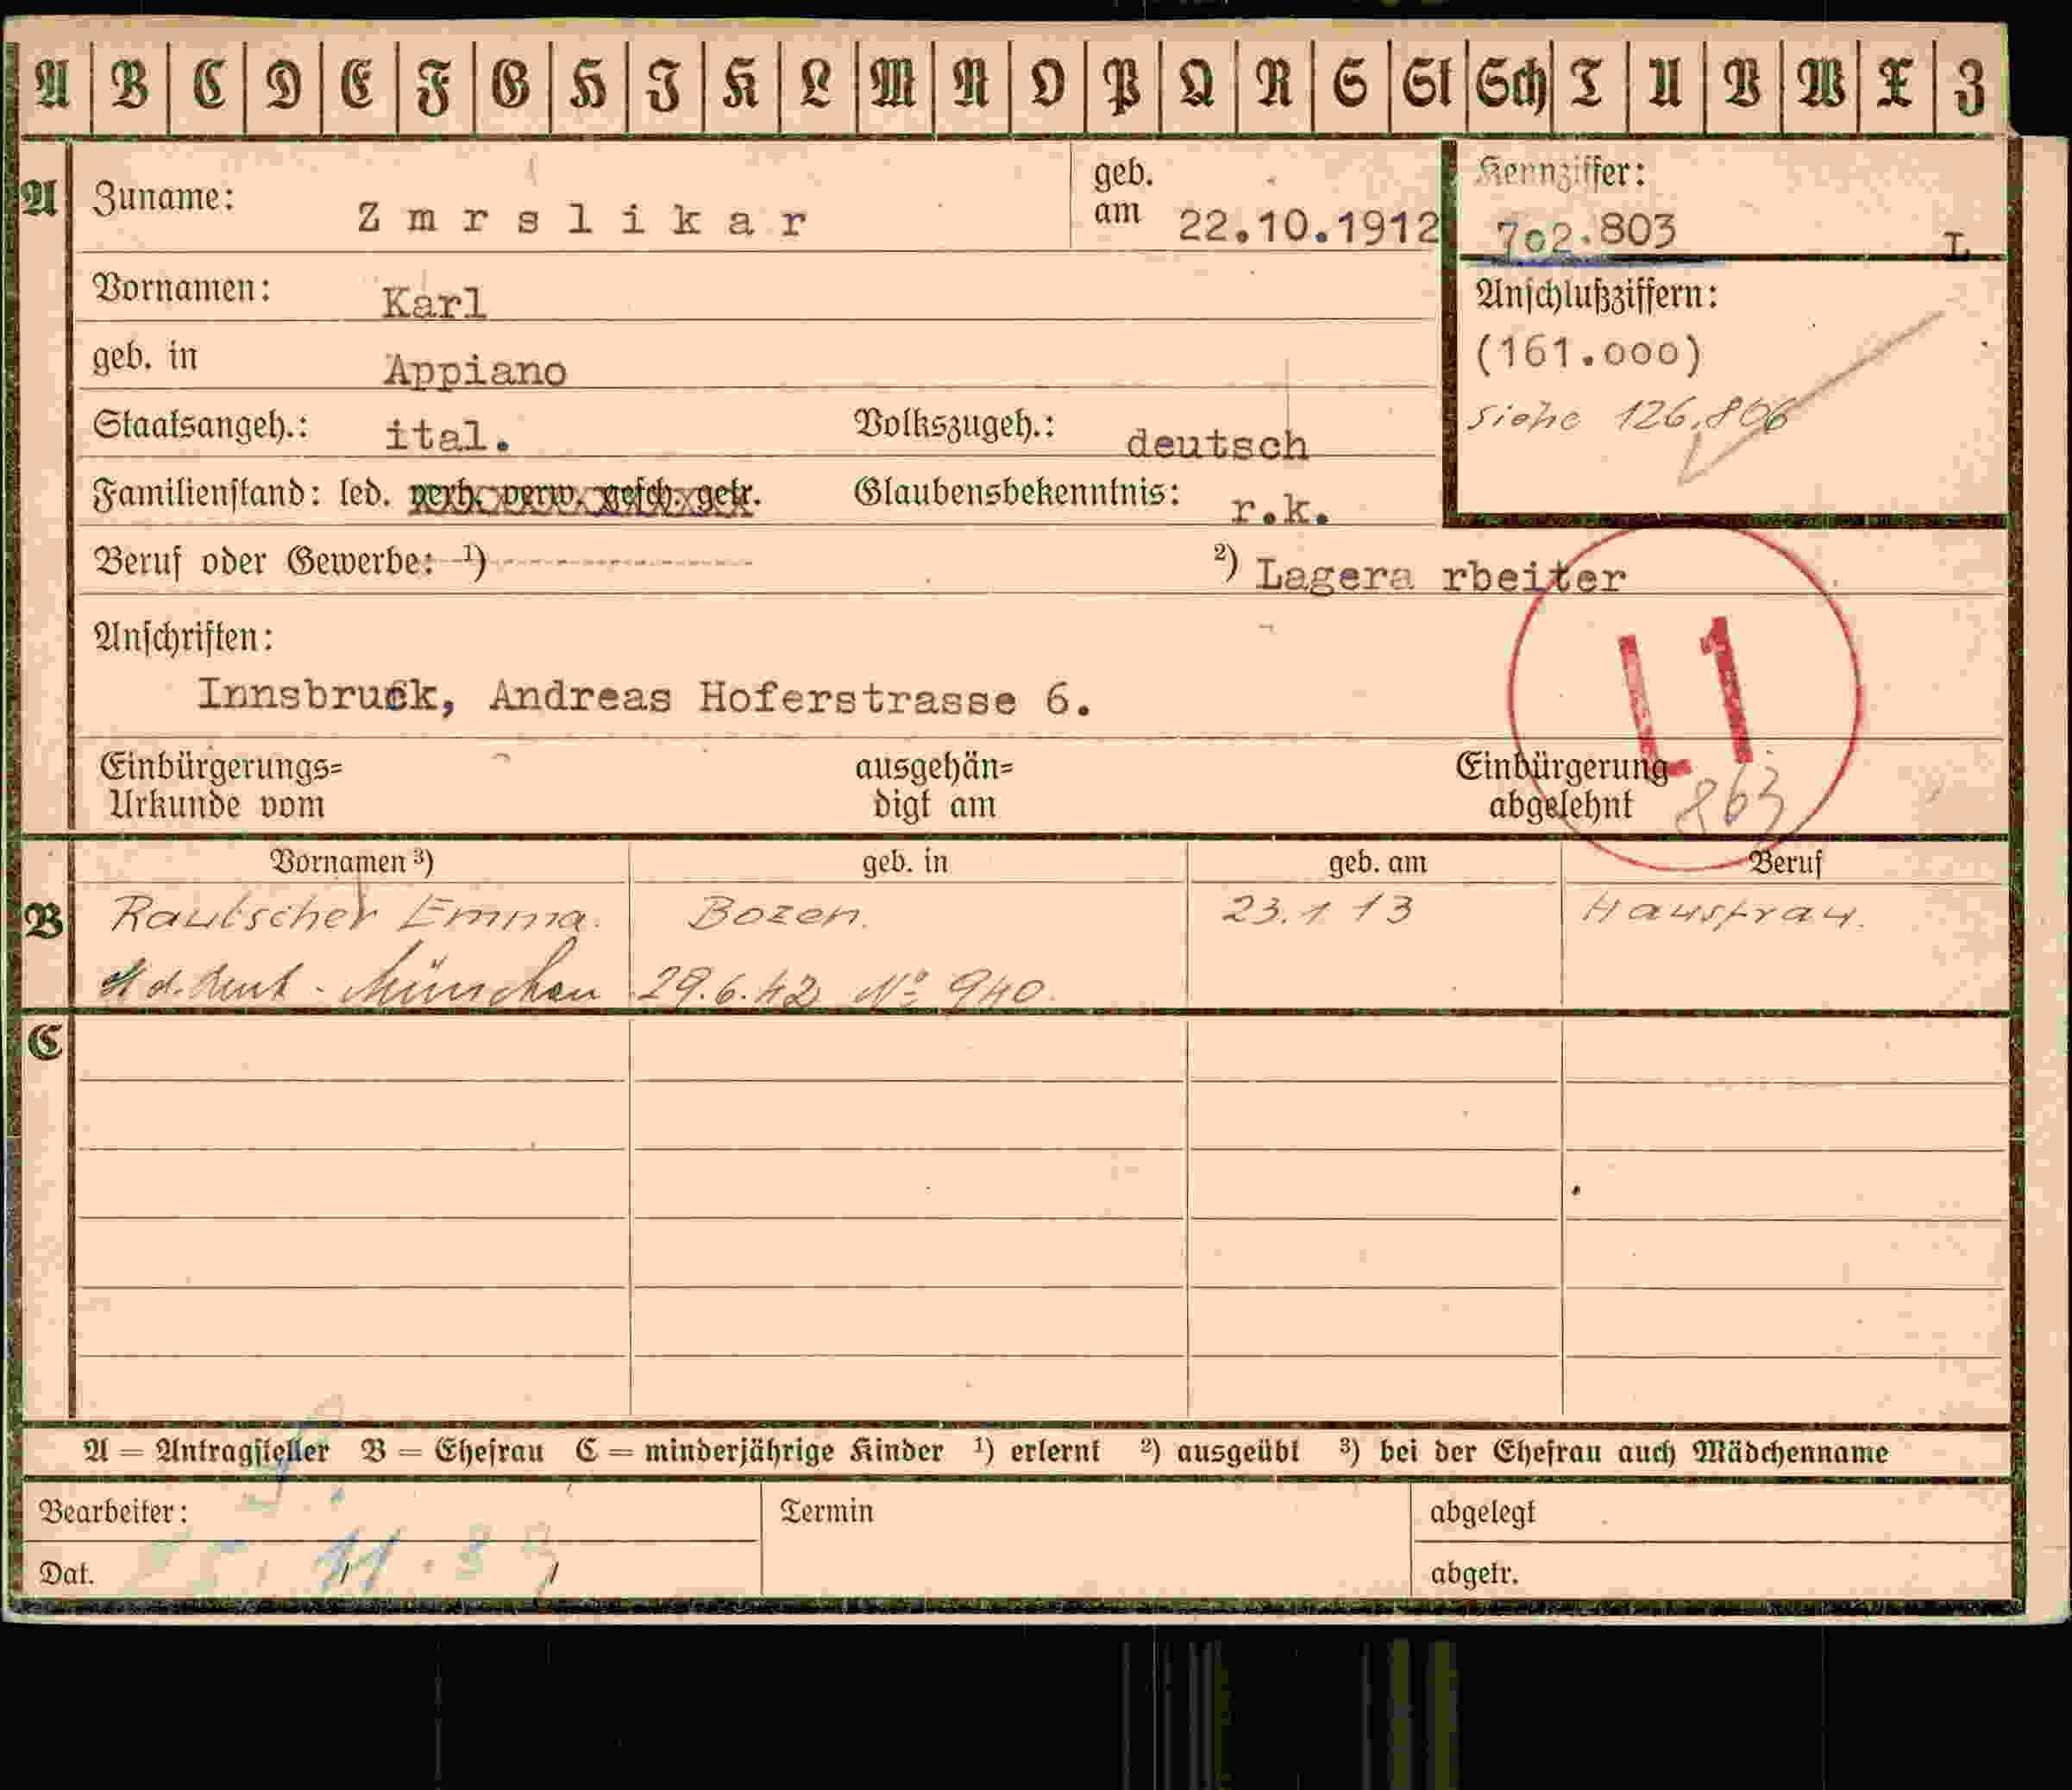 A B C D E F G H I K L M N O P Q R S St Sch T U V W X Z
A Zuname: Zmrslikar geb. am 22.10.1912 Kennziffer: 702.803 L
Vornamen: Karl Anschlußziffern:
geb. in Appiano (161.000)
Staatsangeh.: ital. Volkszugeh.: deutsch siehe 126.806
Familienstand: led. verh. verw. gesch. getr. Glaubensbekenntnis: r.k.
Beruf oder Gewerbe: ¹) ²) Lagera rbeiter
Anschriften:
L1
Innsbruck, Andreas Hoferstrasse 6.
Einbürgerungs= ausgehän= Einbürgerung
Urkunde vom digt am abgelehnt 863
Vornamen ³) geb. in geb. am Beruf
B Rautscher Emma. Bozen. 23.1 13 Hausfrau.
München 29.6.42 Nº 940.
C
A = Antragsteller B = Ehefrau C = minderjährige Kinder ¹) erlernt ²) ausgeübt ³) bei der Ehefrau auch Mädchenname
Bearbeiter: Termin abgelegt
Dat. abgetr.